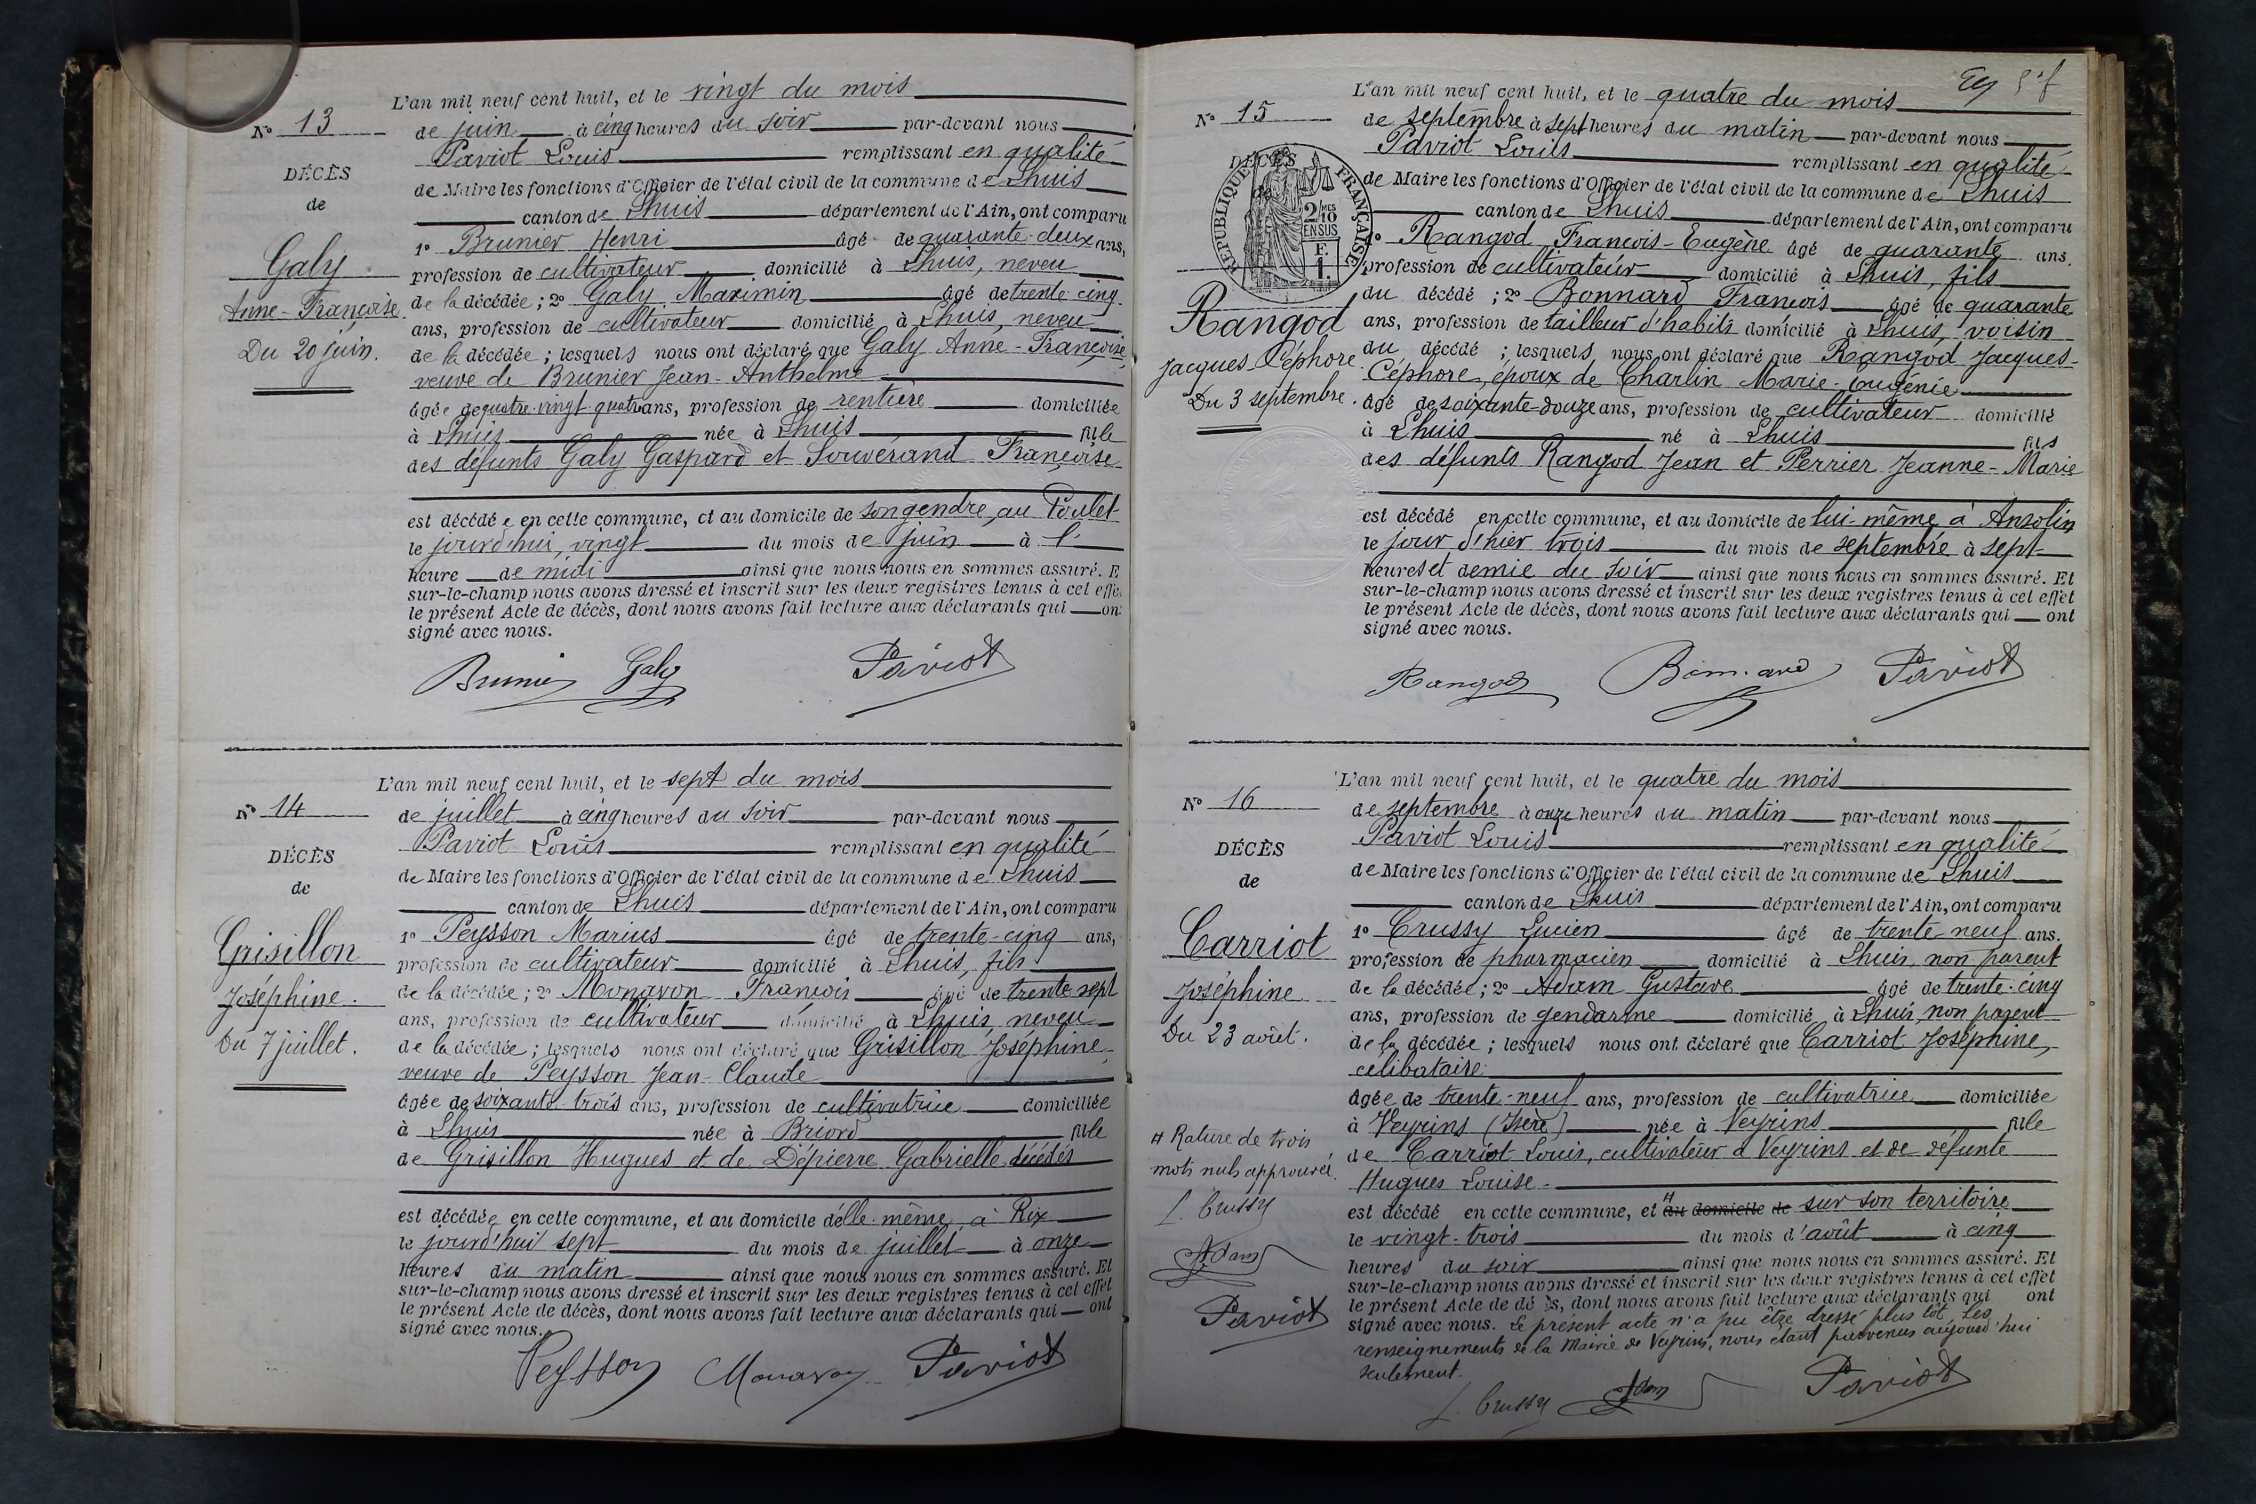 L'an mil neuf cent huit, et le vingt du mois
N° 13
de juin à cinq heures du soir par-devant nous
Paviot Louis remplissant en qualité
DÉCÈS
de Maire les fonctions d'Officier de l'état civil de la commune de Lhuis
de
canton de Lhuis département de l'Ain, ont comparu
1° Brunier Henri âgé de quarante-deux ans,
Galy
profession de cultivateur domicilié à Lhuis, neveu
Anne-Françoise
de la décédée ; 2° Galy Maximin âgé de trente cinq
ans, profession de cultivateur domicilié à Lhuis, neveu
Du 20 juin.
de la décédée ; lesquels nous ont déclaré que Galy Anne-Françoise,
veuve de Brunier Jean-Anthelme
âgée de quatre-vingt-quatre ans, profession de rentière domiciliée
à Lhuis née à Lhuis fille
des défunts Galy Gaspard et Souvérand Françoise
est décédée en cette commune, et au domicile de son gendre, au Poulet
le jourd'hui, vingt du mois de juin à l'
heure de midi ainsi que nous nous en sommes assuré. E
sur-le-champ nous avons dressé et inscrit sur les deux registres tenus à cet effe
le présent Acte de décès, dont nous avons fait lecture aux déclarants qui on
signé avec nous.
Brunier Galy Paviot
L'an mil neuf cent huit, et le sept du mois
N° 14
de juillet à cinq heures du soir par-devant nous
Paviot Louis remplissant en qualité
DÉCÈS
de Maire les fonctions d'Officier de l'état civil de la commune de Lhuis
de
canton de Lhuis département de l'Ain, ont comparu
1° Peysson Marius âgé de trente-cinq ans,
Grisillon
profession de cultivateur domicilié à Lhuis, fils
Joséphine.
de la décédée ; 2° Monavon François âgé de trente sept
ans, profession de cultivateur domicilié à Lhuis, neveu
Du 7 juillet.
de la décédée ; lesquels nous ont déclaré que Grisillon Joséphine,
veuve de Peysson Jean-Claude
âgée de soixante-trois ans, profession de cultivatrice domiciliée
à Lhuis née à Briord fille
de Grisillon Hugues et de Dépierre Gabrielle décédés
est décédée en cette commune, et au domicile d'elle-même, à Rix
le jourd'hui sept du mois de juillet à onze
heures du matin ainsi que nous nous en sommes assuré. Et
sur-le-champ nous avons dressé et inscrit sur les deux registres tenus à cet effet
le présent Acte de décès, dont nous avons fait lecture aux déclarants qui ont
signé avec nous.
Peysson Monavon Paviot
L'an mil neuf cent huit, et le quatre du mois
N° 15
de septembre à sept heures du matin par-devant nous
Paviot Louis remplissant en qualité
DÉCÈS
de Maire les fonctions d'Officier de l'état civil de la commune de Lhuis
de
RÉPUBLIQUE FRANÇAISE
2/10 MES
EN SUS
F.
1.
canton de Lhuis département de l'Ain, ont comparu
1° Rangod François-Eugène âgé de quarante ans,
profession de cultivateur domicilié à Lhuis, fils
Rangod
du décédé ; 2° Bonnard François âgé de quarante
ans, profession de tailleur d'habits domicilié à Lhuis, voisin
Jacques-Céphore.
du décédé ; lesquels nous ont déclaré que Rangod Jacques-
Céphore, époux de Charlin Marie-Eugénie
Du 3 septembre.
âgé de soixante-douze ans, profession de cultivateur domicilié
à Lhuis né à Lhuis fils
des défunts Rangod Jean et Perrier Jeanne-Marie
est décédé en cette commune, et au domicile de lui-même à Ansolin
le jour d'hier trois du mois de septembre à sept
heures et demie du soir ainsi que nous nous en sommes assuré. Et
sur-le-champ nous avons dressé et inscrit sur les deux registres tenus à cet effet
le présent Acte de décès, dont nous avons fait lecture aux déclarants qui ont
signé avec nous.
Rangod Bonnard Paviot
L'an mil neuf cent huit, et le quatre du mois
N° 16
de septembre à onze heures du matin par-devant nous
Paviot Louis remplissant en qualité
DÉCÈS
de Maire les fonctions d'Officier de l'état civil de la commune de Lhuis
de
canton de Lhuis département de l'Ain, ont comparu
1° Crussy Lucien âgé de trente-neuf ans.
Carriot
profession de pharmacien domicilié à Lhuis, non parent
Joséphine
de la décédée ; 2° Adam Gustave âgé de trente-cinq
ans, profession de gendarme domicilié à Lhuis, non parent
Du 23 août.
de la décédée ; lesquels nous ont déclaré que Carriot Joséphine,
célibataire
âgée de trente-neuf ans, profession de cultivatrice domiciliée
à Veyrins (Isère) née à Veyrins fille
# Rature de trois
mots nuls approuvée.
de Carriot Louis, cultivateur à Veyrins et de défunte
Hugues Louise
L. Crussy
est décédé en cette commune, et # au domicile de sur son territoire
le vingt-trois du mois d'août à cinq
Adam
heures du soir ainsi que nous nous en sommes assuré. Et
sur-le-champ nous avons dressé et inscrit sur les deux registres tenus à cet effet
Paviot
le présent Acte de décès, dont nous avons fait lecture aux déclarants qui ont
signé avec nous. Le présent acte n'a pu être dressé plus tôt, les
renseignements de la Mairie de Veyrins, nous étant parvenus aujourd'hui
seulement.
L. Crussy Adam Paviot